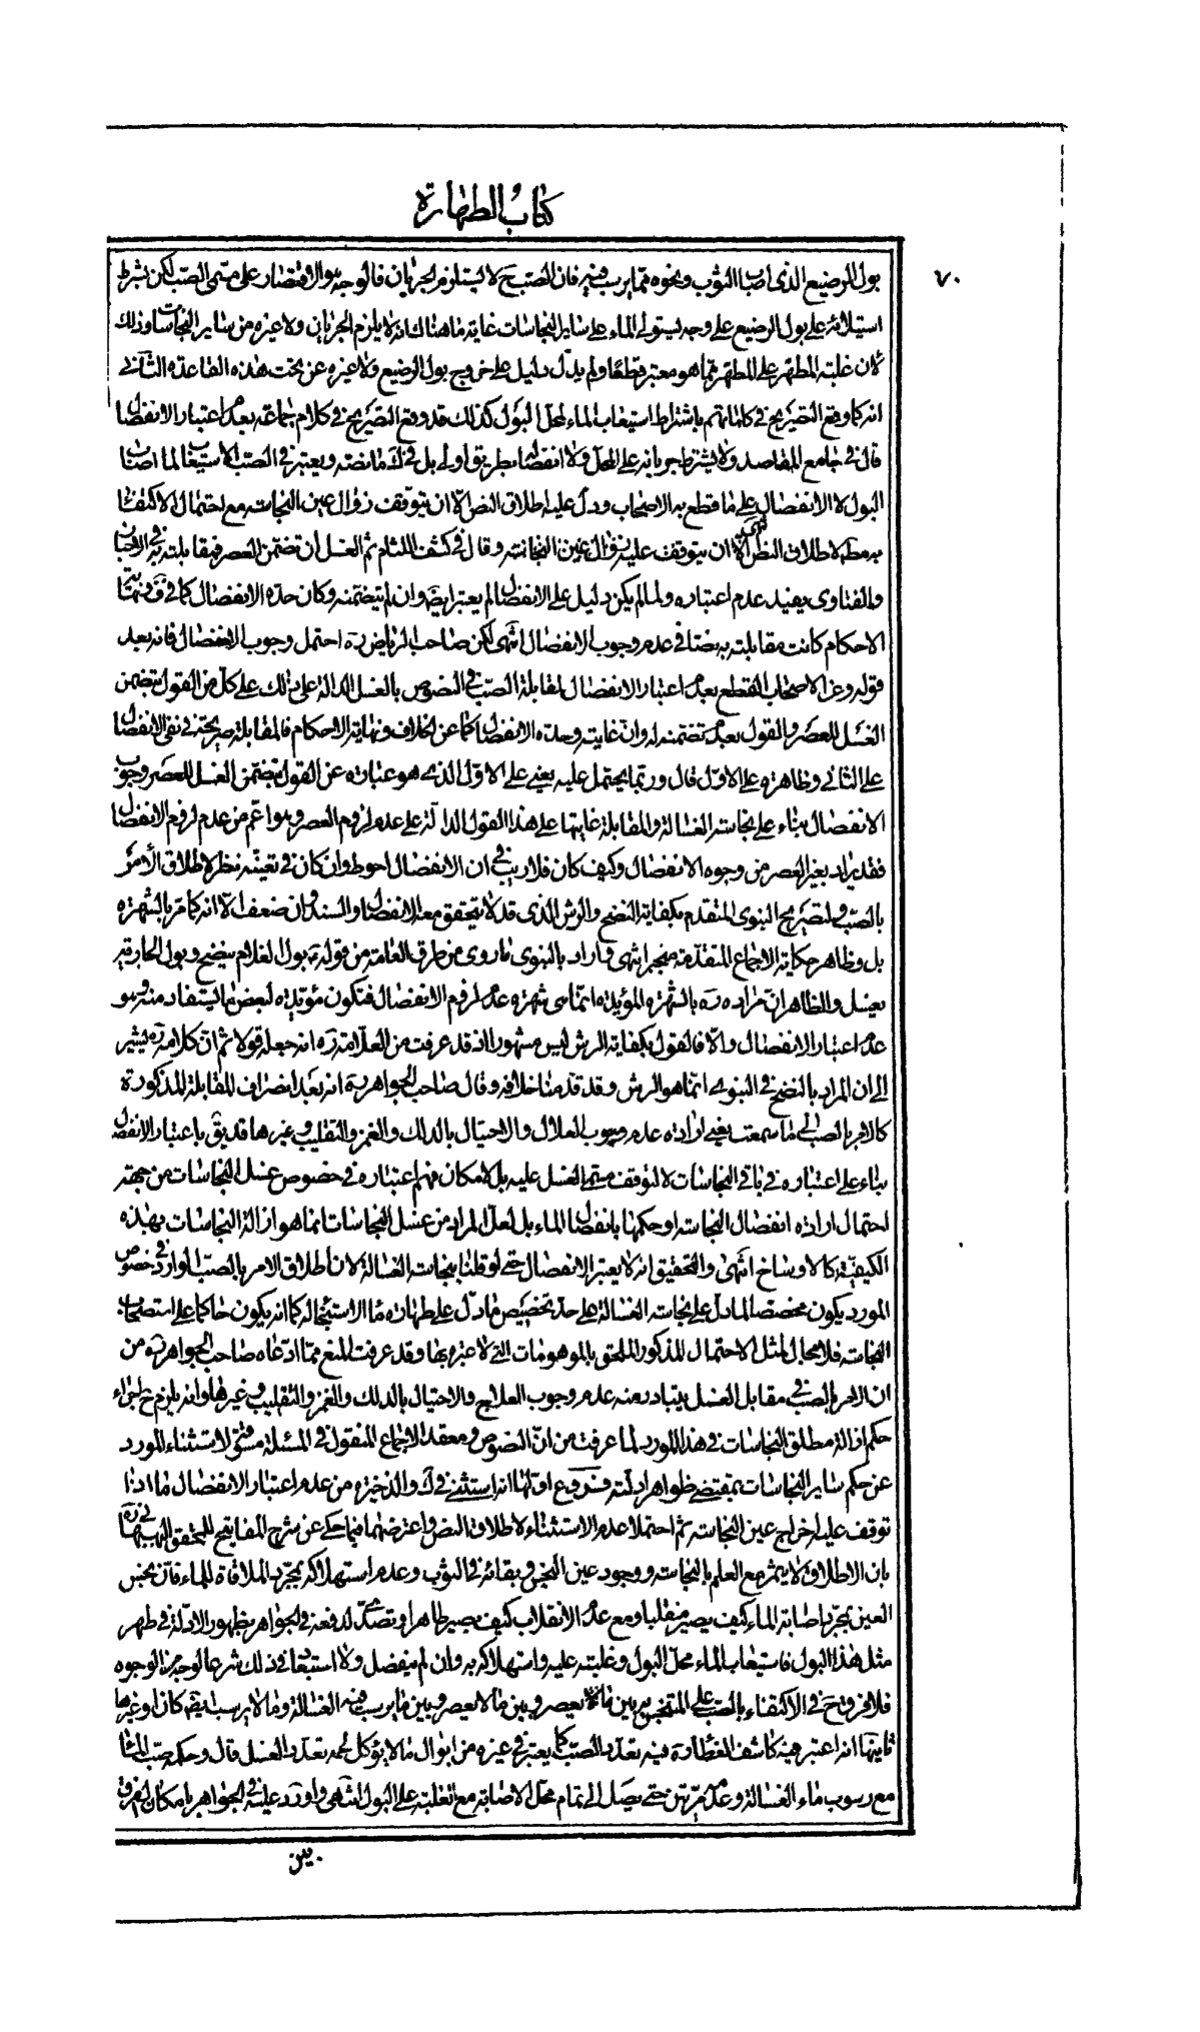 كتاب الطهارة
٧٠
بول الرضيع الذى اصاب الثوب ونحوه مما يرسب فيه فان الصب ح لا يستلزم الجريان فالوجه هو الاقتصار على مسمى الصب لكن بشرط
استيلائه على بول الرضيع على وجه يستولى الماء على ساير النجاسات غاية ما هناك انه لا يلزم الجريان ولا غيره من ساير النجاسات وذلك
لان غلبة المطهر على المطهر مما هو معتبر قطعا ولم يدل دليل على خروج بول الرضيع ولا غيره عن تحت هذه القاعدة الثانى
انه كما وقع التصريح فى كلماتهم باشتراط استيعاب الماء لمحل البول كذلك قد وقع التصريح فى كلام جماعة بعدم اعتبار الانفصال
قال فى جامع المقاصد ولا يشترط جريانه على المحل ولا انفصاله بطريق اولى بل فى ك ما نصه ويعتبر فى الصب الاستيعاب لما اصاب
البول لا الانفصال على ما قطع به الاصحاب ودل عليه اطلاق النص الا ان يتوقف زوال عين النجاسة مع احتمال الاكتفاء
به مط لاطلاق النص انتهى الا ان يتوقف عليه زوال عين النجاسة وقال فى كشف اللثام ثم الغسل ان تضمن العصر فمقابلته به فى الاخبار
والفتاوى يفيد عدم اعتباره ولما لم يكن دليل على الانفصال لم يعتبر ايضا وان لم يتضمنه وكان حده الانفصال كما فى ف ونهاية
الاحكام كانت مقابلته به نصا فى عدم وجوب الانفصال انتهى لكن صاحب الرياض ره احتمل وجوب الانفصال فانه بعد
قوله وعن الاصحاب القطع بعدم اعتبار الانفصال لمقابلة الصب فى النصوص بالغسل الدالة على ذلك على كل من القول بتضمن
الغسل للعصر والقول بعدم تضمنه له وان غايته وحده الانفصال كما عن الخلاف ونهاية الاحكام فالمقابلة صريحة فى نفى الانفصال
على الثانى وظاهره على الاول قال وربما يحتمل عليه يعنى على الاول الذى هو عبارة عن القول بتضمن الغسل للعصر وجوب
الانفصال بناء على نجاسة الغسالة والمقابلة غايتها على هذا القول الدالة على عدم لزوم العصر وهو اعم من عدم لزوم الانفصال
فقد يراد بغير العصر من وجوه الانفصال وكيف كان فلا ريب فى ان الانفصال احوط وان كان فى تعينه نظر لاطلاق الأمر
بالصب ولتصريح النبوى المتقدم بكفاية النضح والرش الذى قد لا يتحقق معه الانفصال والسند وان ضعف الا انه كما مر بالشهرة
بل وظاهر حكاية الاجماع المتقدمة منجبر انتهى واراد بالنبوى ما روى من طرق العامة من قوله ص بول الغلام ينضح وبول الجارية
يغسل والظاهر ان مراده ره بالشهرة المؤيدة انما هى شهرة عدم لزوم الانفصال فتكون مؤيدة لبعض ما يستفاد منه وهو
عدم اعتبار الانفصال والا فالقول بكفاية الرش ليس مشهورا اذ قد عرفت من العلامة ره انه جعله قولا ثم ان كلامه ره يشير
الى ان المراد بالنضح فى النبوى انما هو الرش وقد قدمنا خلافه وقال صاحب الجواهر ره انه بعد انصراف المقابلة المذكورة
كالامر بالصب الى ما سمعت يعنى ارادة عدم وجوب العلاج والاحتيال بالدلك والغمز والتقليب وغيرها قد يق باعتبار الانفصال
بناء على اعتباره فى باقى النجاسات لا لتوقف مسمى الغسل عليه بل لامكان فهم اعتباره فى خصوص غسل النجاسات من جهة
احتمال ارادة انفصال النجاسة او حكمها بانفصال الماء بل لعل المراد من غسل النجاسات انما هو ازالة النجاسات بهذه
الكيفية كالاوساخ انتهى والتحقيق انه لا يعتبر الانفصال حتى لو قلنا بنجاسة الغسالة لان اطلاق الامر بالصب الوارد فى خصوص
المورد يكون مخصصا لما دل على نجاسة الغسالة على حد تخصيص ما دل على طهارة ماء الاستنجاء له كما انه يكون حاكما على استصحاب
النجاسة فلا مجال لمثل الاحتمال المذكور الملحق بالموهومات التى لا عبرة بها وقد عرفت المنع مما ادعاه صاحب الجواهر ره من
ان الامر بالصب فى مقابل الغسل يتبادر منه عدم وجوب العلاج والاحتيال بالدلك والغمز والتقليب وغيرها وانه يلزم ح اجراء
حكم ازالة مطلق النجاسات فى هذا المورد لما عرفت من ان النصوص ومعقد الاجماع المنقول فى المسئلة مسوق لاستثناء المورد
عن حكم ساير النجاسات بمقتضى ظواهر ادلته فروع اولها انه استثنى فى ك والذخيرة من عدم اعتبار الانفصال ما اذا
توقف عليه اخراج عين النجاسة ثم احتملا عدم الاستثناء لاطلاق النص واعترضهما فيما حكى عن شرح المفاتيح للمحقق البهبهانى ره
بان الاطلاق لا يثمر مع العلم بالنجاسة ووجود عين النجس وبقائه فى الثوب وعدم استهلاكه بمجرد الملاقاة للماء فان نجس
العين بمجرد اصابة الماء كيف يصير منقلبا ومع عدم الانقلاب كيف يصير طاهرا وتصدى لدفعه فى الجواهر بظهور الادلة فى طهر
مثل هذا البول فاستيعاب الماء محل البول وغلبته عليه واستهلاكه به وان لم ينفصل ولا استبعاد فى ذلك شرعا لوجه من الوجوه
فلا فرق ح فى الاكتفاء بالصب على المتنجس به بين ما يعصر وبين ما لا يعصر وبين ما يرسب فيه الغسالة وما لا يرسب فيه كان او غيرها
ثانيها انه اعتبر فيه كاشف الغطاء ره فيه تعدد الصب كما يعتبر فى غيره من ابوال ما لا يؤكل لحمه تعدد الغسل قال وحكمه صب الماء
مع رسوب ماء الغسالة وعدمه مرتين حتى يصل الى تمام محل الاصابة مع الغلبة على البول انتهى واورد عليه فى الجواهر بامكان الفرق
بين